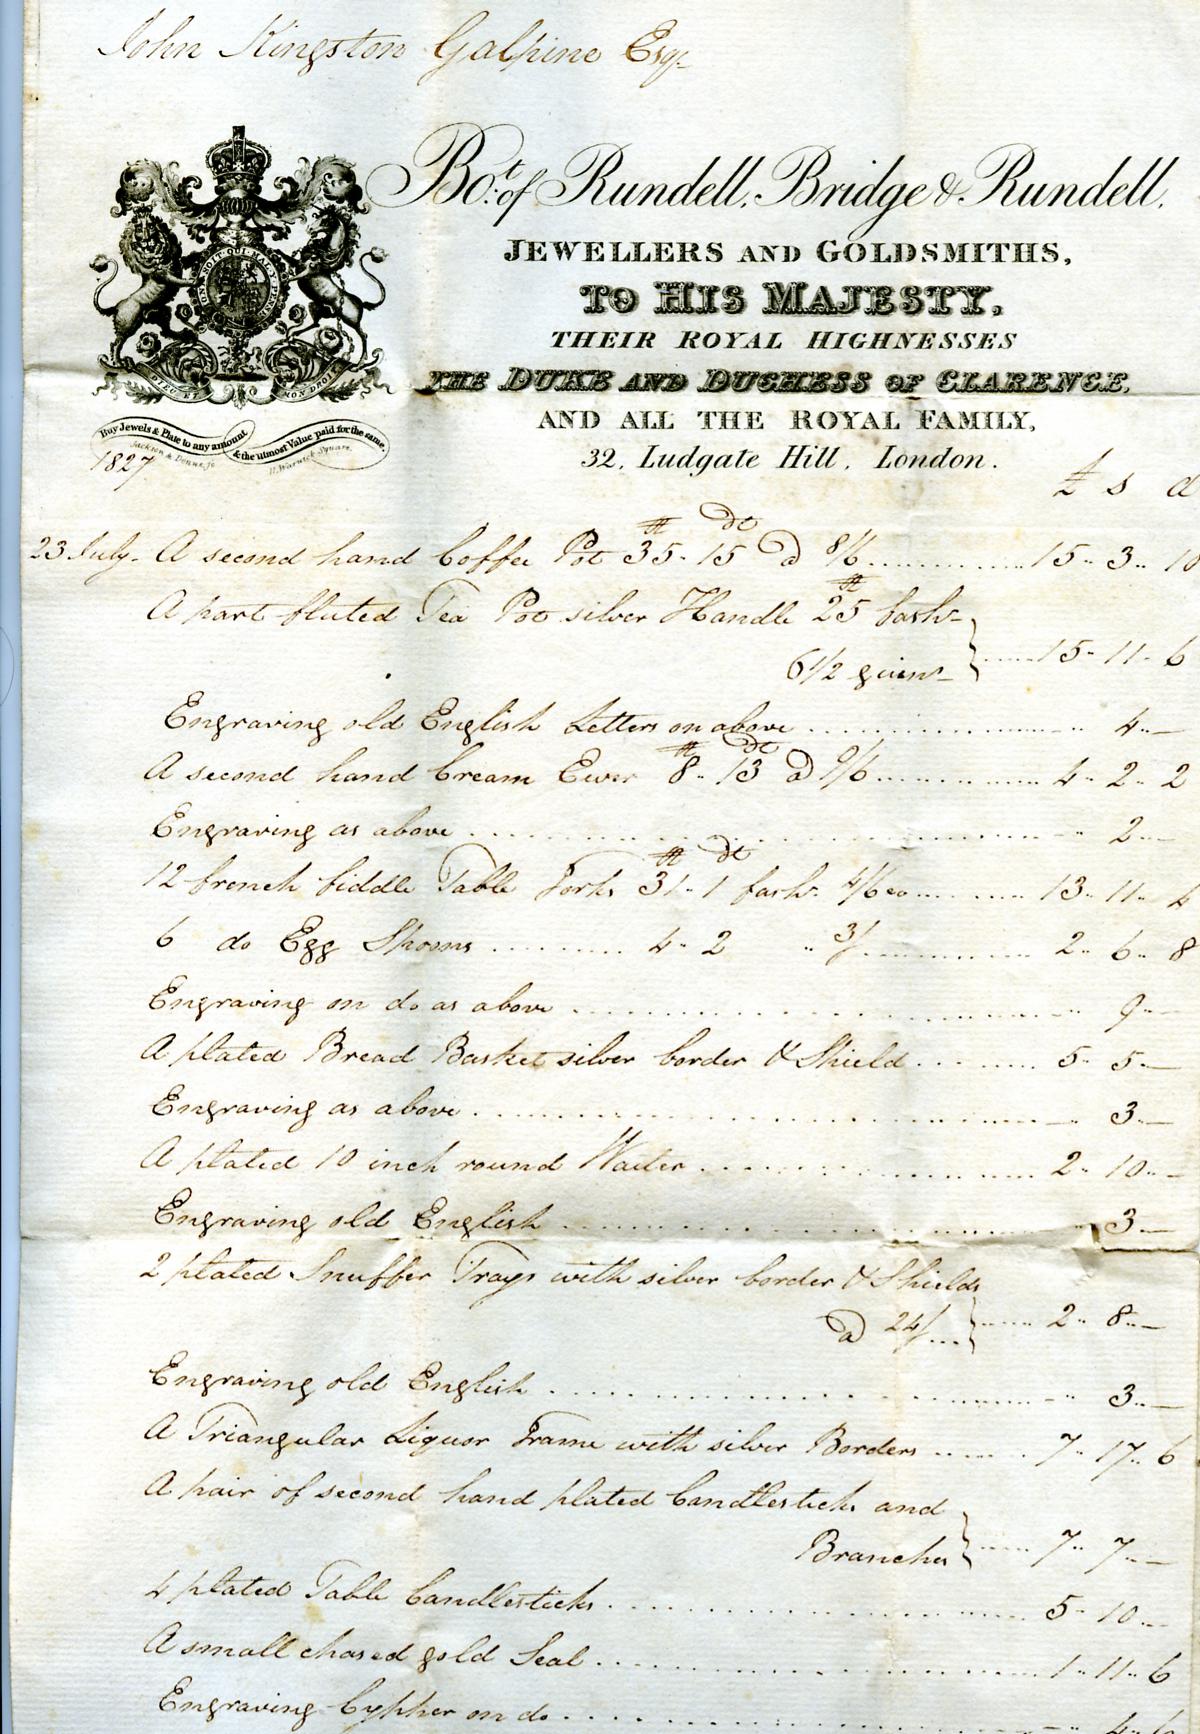 John Kingston Galpine Esqr
Bot. of Rundell, Bridge & Rundell,
JEWELLERS AND GOLDSMITHS,
TO HIS MAJESTY,
THEIR ROYAL HIGHNESSES
THE DUKE AND DUCHESS OF CLARENCE,
AND ALL THE ROYAL FAMILY,
32, Ludgate Hill, London.
HONI SOIT QUI MAL Y PENSE
DIEU ET MON DROIT
Buy Jewels & Plate to any amount & the utmost Value paid for the same.
1827
£ s d
23 July. A second hand Coffee Pot 35 - 15 @ 8/6 15 - 3 - 10
A part fluted Tea Pot silver Handle 25 fash
6 1/2 guins 15 - 11 - 6
Engraving old English Letters on above 4 - —
A second hand Cream Ewer 8 - 13 @ 9/6 4 - 2 - 2
Engraving as above 2 - —
12 french fiddle Table Forks 31 - 1 fash. 4/6 ea 13 - 11 - 4
6 do Egg Spoons 4 - 2 " 3/ 2 - 6 - 8
Engraving on do as above 9 - —
A plated Bread Basket silver border & Shield 5 - 5 - —
Engraving as above 3 - —
A plated 10 inch round Waiter 2 - 10 - —
Engraving old English 3 - —
2 plated Snuffer Trays with silver border & Shields
@ 24/ 2 - 8 - —
Engraving old English 3 - —
A Triangular Liquor Frame with silver Borders 7 - 17 - 6
A pair of second hand plated Candlesticks and
Branches 7 - 7 - —
4 plated Table Candlesticks 5 - 10 - —
A small chased gold Seal 1 - 11 - 6
Engraving Cypher on do